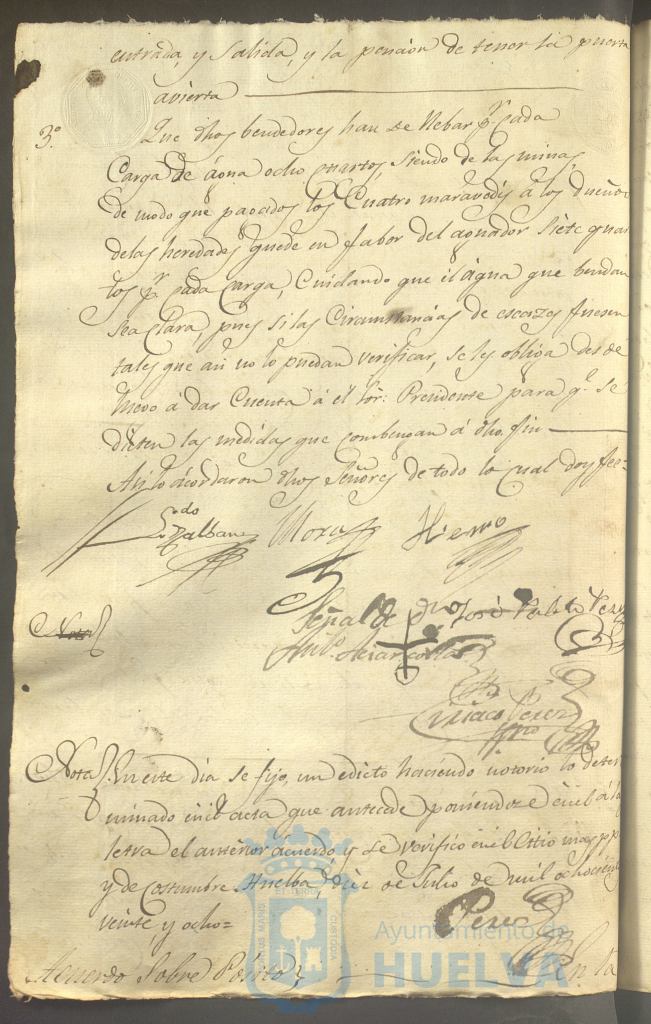 entrada, y salida, y la pencion de tener la puerta
avierta
3.º Que dhos bendedores han de llebar pr. cada
Carga de agua ocho quartos, siendo de las minas,
de modo que pagados los Cuatro maravedis a los dueños
de las heredades quede en fabor del aguador siete quar
tos pr. cada Carga, Cuidando que el agua que bendan
sea Clara, pues si las Circunstancias de escazes fuesen
tales que asi no lo puedan verificar, se les obliga desde
luego á dar Cuenta á el Sor. Precidente para q.e se
dicten las medidas que combengan á dho. fin
Asi lo ácordaron dhos Señores de todo lo cual doy fee=
Ldo Zalbane Mora Hierro
Señal de José Pablo Perez
Nota
Ciriaco Perez
Nota En este dia se fijo, un edicto haciendo notorio lo deter
minado en el acta que antecede poniendose en el á la
letra el anterior ácuerdo y se verifico en el Citio mas pp
y de Costumbre. Huelba, diez de Julio de mil ochocient
veinte, y ocho=
Perez
Acuerdo Sobre Pósito En la
Ayuntamiento de
HUELVA
PORTUS MARIS
ET TERRE
CUSTODIA